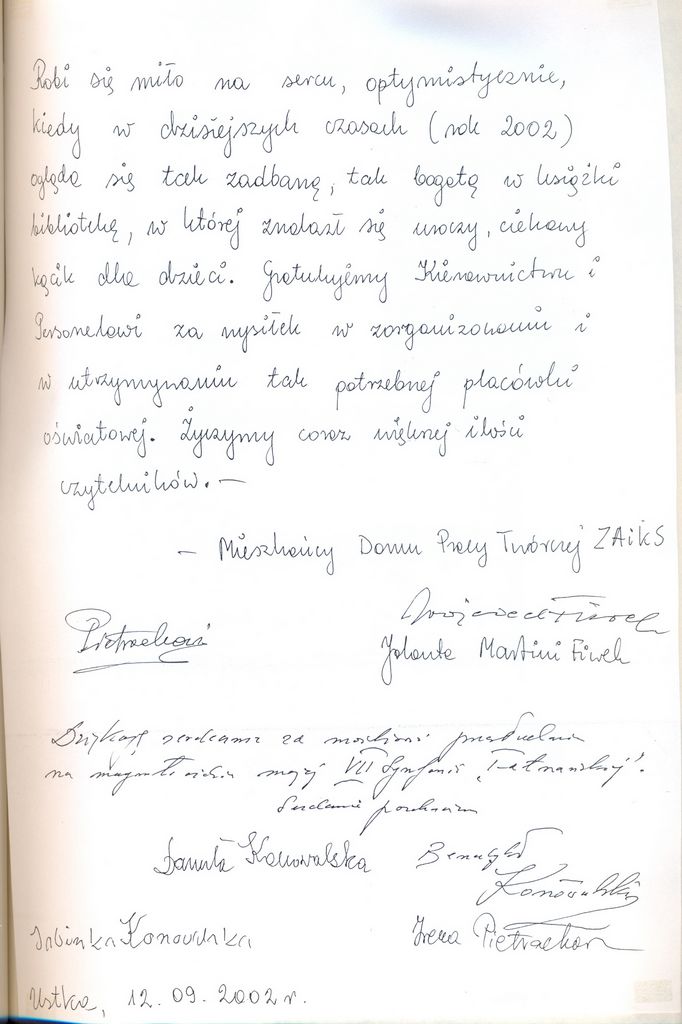 Robi się miło na sercu, optymistycznie,
kiedy w dzisiejszych czasach (rok 2002)
ogląda się tak zadbaną, tak bogatą w książki
bibliotekę, w której znalazł się uroczy, ciekawy
kącik dla dzieci. Gratulujemy Kierownictwu i
Personelowi za wysiłek w zorganizowaniu i
w utrzymywaniu tak potrzebnej placówki
oświatowej. Życzymy coraz większej ilości
czytelników. —
— Mieszkańcy Domu Pracy Twórczej ZAiKS
Wojciech Fiwek
Jolanta Martini Fiwek
Dziękuję serdecznie za możliwość
na mojej VII Symfonii „Tatrzańskiej”.
Danuta Konowalska Benedykt
Konowalski
Konowalska Irena Pietrachowicz
Ustka, 12.09.2002 r.